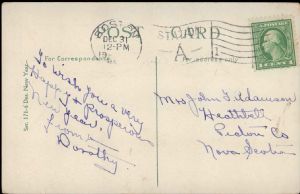 BOSTON
DEC 31
12-PM
19
STA.
A
POST CARD
For Correspondence
For address only
Ser. 171-6 Des. New Year
To wish you a very
Happy & Prosperous
New Year.
From
Dorothy.
Mrs John F. Adamson
Heathbell
Pictou Co
Nova Scotia